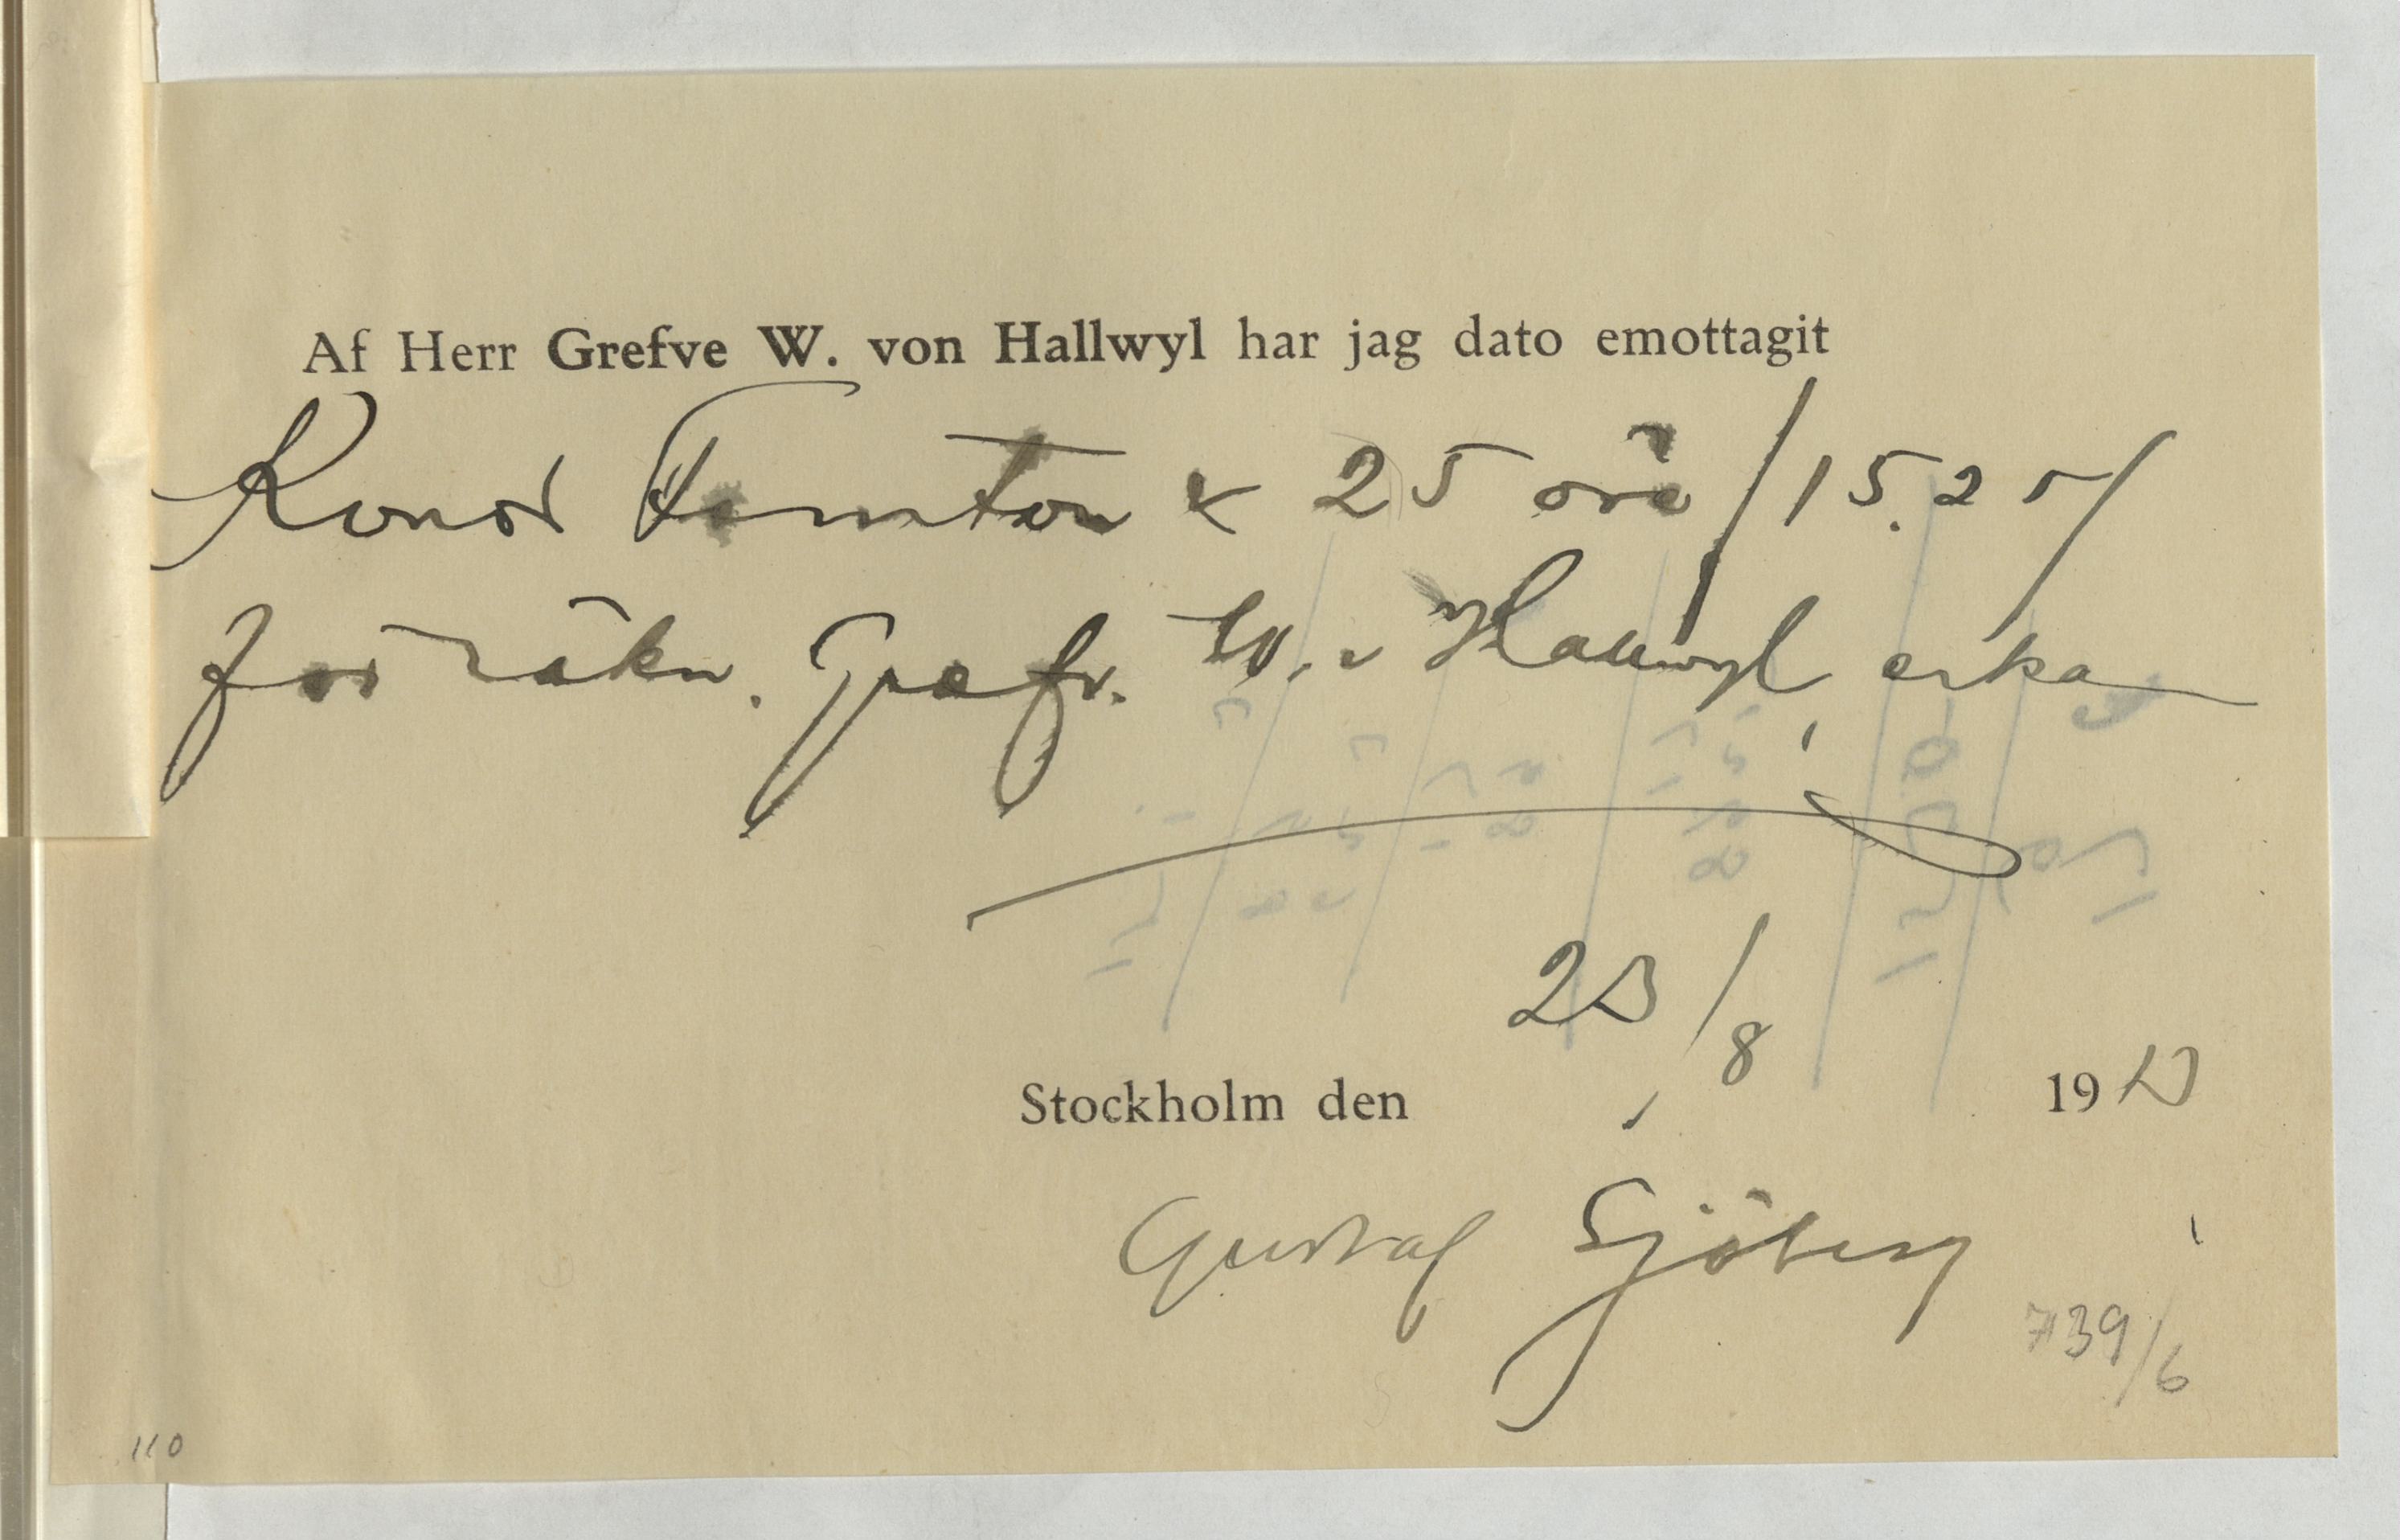 Af Herr Grefve W. von Hallwyl har jag dato emottagit
Kronor Femton & 25 öre /15.25/
för räkn. Grefv. W. v Hallwyl, erka
23/8
Stockholm den 1913
Gustaf Sjöberg
739/6
110